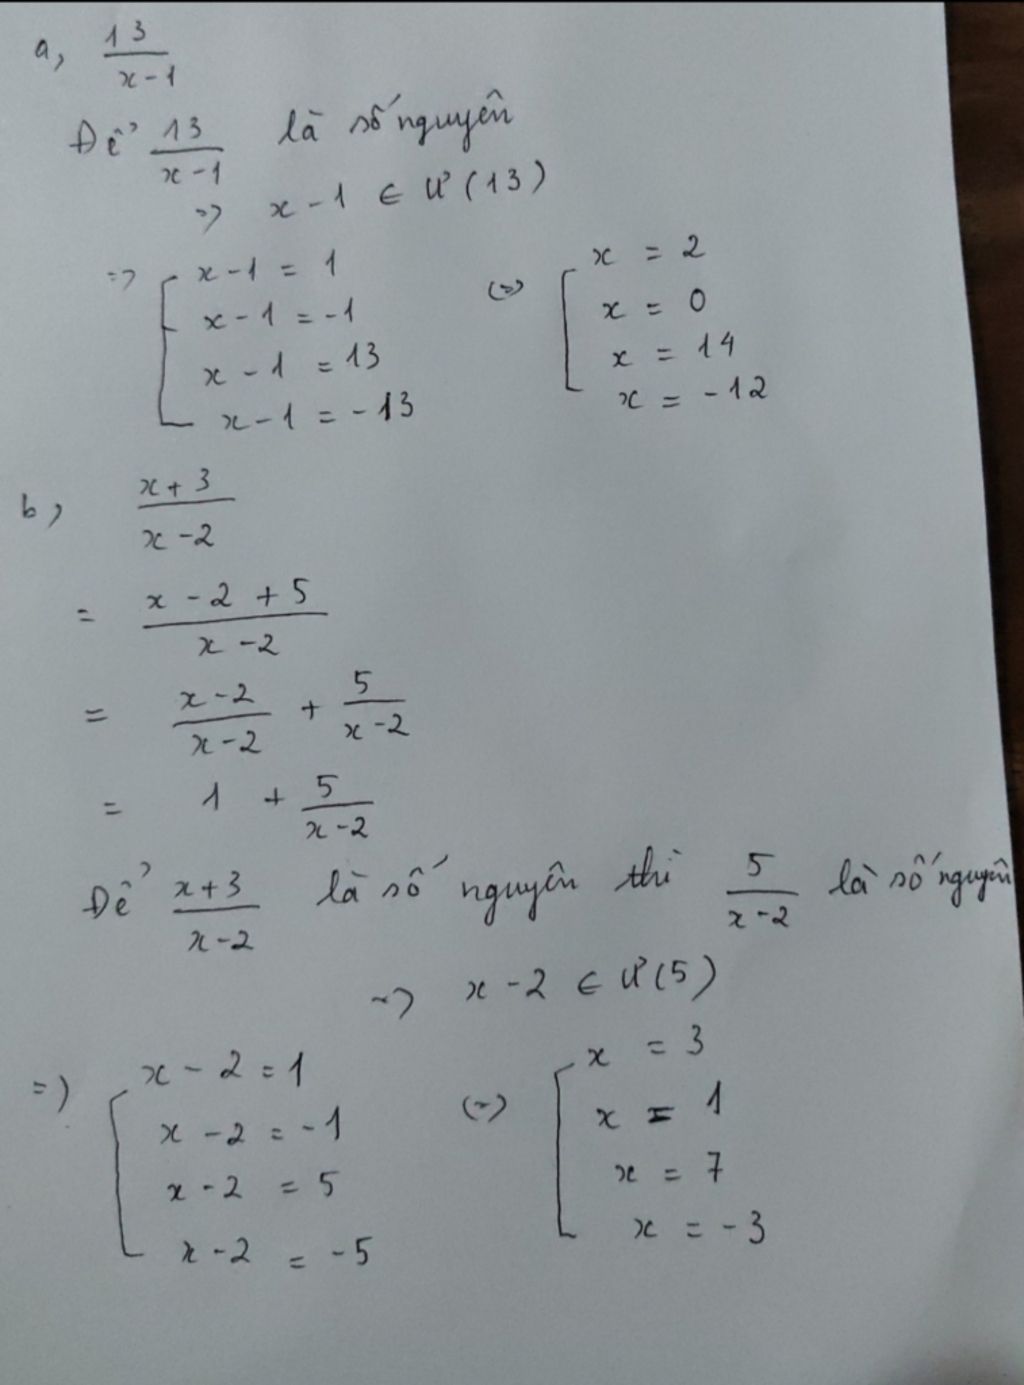 a, 13/(x-1)
Để 13/(x-1) là số nguyên
=> x-1 ∈ Ư(13)
=> [ x-1 = 1 (=) [ x = 2
x-1 = -1 x = 0
x-1 = 13 x = 14
x-1 = -13 x = -12
b, (x+3)/(x-2)
= (x-2+5)/(x-2)
= (x-2)/(x-2) + 5/(x-2)
= 1 + 5/(x-2)
Để (x+3)/(x-2) là số nguyên thì 5/(x-2) là số nguyên
=> x-2 ∈ Ư(5)
=) [ x-2 = 1 (=) [ x = 3
x-2 = -1 x = 1
x-2 = 5 x = 7
x-2 = -5 x = -3